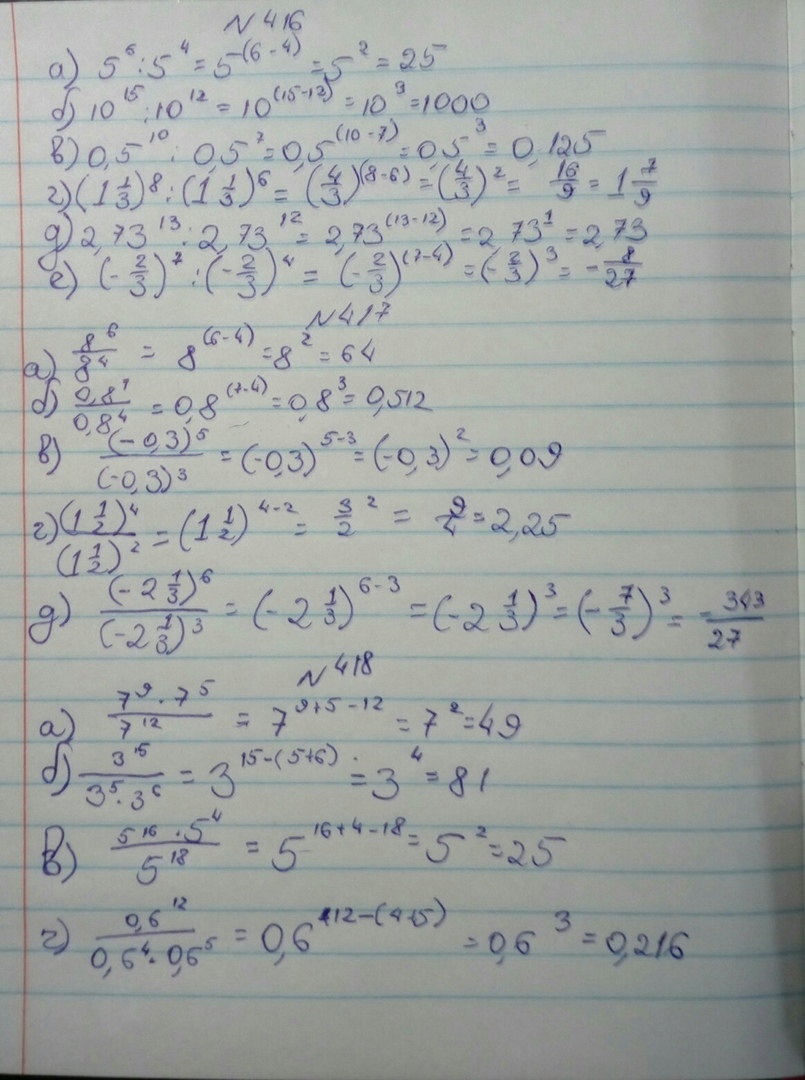 N 416
а) 5⁶ : 5⁴ = 5⁽⁶⁻⁴⁾ = 5² = 25
б) 10¹⁵ : 10¹² = 10⁽¹⁵⁻¹²⁾ = 10³ = 1000
в) 0,5¹⁰ : 0,5⁷ = 0,5⁽¹⁰⁻⁷⁾ = 0,5³ = 0,125
г) (1 1/3)⁸ : (1 1/3)⁶ = (4/3)⁽⁸⁻⁶⁾ = (4/3)² = 16/9 = 1 7/9
д) 2,73¹³ : 2,73¹² = 2,73⁽¹³⁻¹²⁾ = 2,73¹ = 2,73
е) (-2/3)⁷ : (-2/3)⁴ = (-2/3)⁽⁷⁻⁴⁾ = (-2/3)³ = -8/27
N 417
а) 8⁶/8⁴ = 8⁽⁶⁻⁴⁾ = 8² = 64
б) 0,8⁷/0,8⁴ = 0,8⁽⁷⁻⁴⁾ = 0,8³ = 0,512
в) (-0,3)⁵/(-0,3)³ = (-0,3)⁵⁻³ = (-0,3)² = 0,09
г) (1 1/2)⁴/(1 1/2)² = (1 1/2)⁴⁻² = 3/2² = 9/4 = 2,25
д) (-2 1/3)⁶/(-2 1/3)³ = (-2 1/3)⁶⁻³ = (-2 1/3)³ = (-7/3)³ = -343/27
N 418
а) 7⁹ · 7⁵/7¹² = 7⁹⁺⁵⁻¹² = 7² = 49
б) 3¹⁵/3⁵ · 3⁶ = 3¹⁵⁻⁽⁵⁺⁶⁾ = 3⁴ = 81
в) 5¹⁶ · 5⁴/5¹⁸ = 5¹⁶⁺⁴⁻¹⁸ = 5² = 25
г) 0,6¹²/0,6⁴ · 0,6⁵ = 0,6¹²⁻⁽⁴⁺⁵⁾ = 0,6³ = 0,216